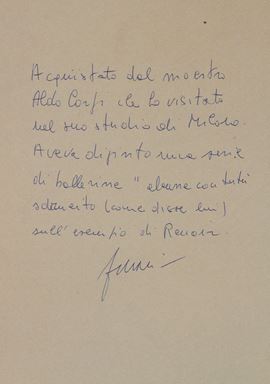 Acquistato dal maestro
Aldo Carpi che ho visitato
nel suo studio di Milano.
Aveva dipinto una serie
di ballerine "alcune con tutù
sdrucito (come disse lui)
sull'esempio di Renoir.